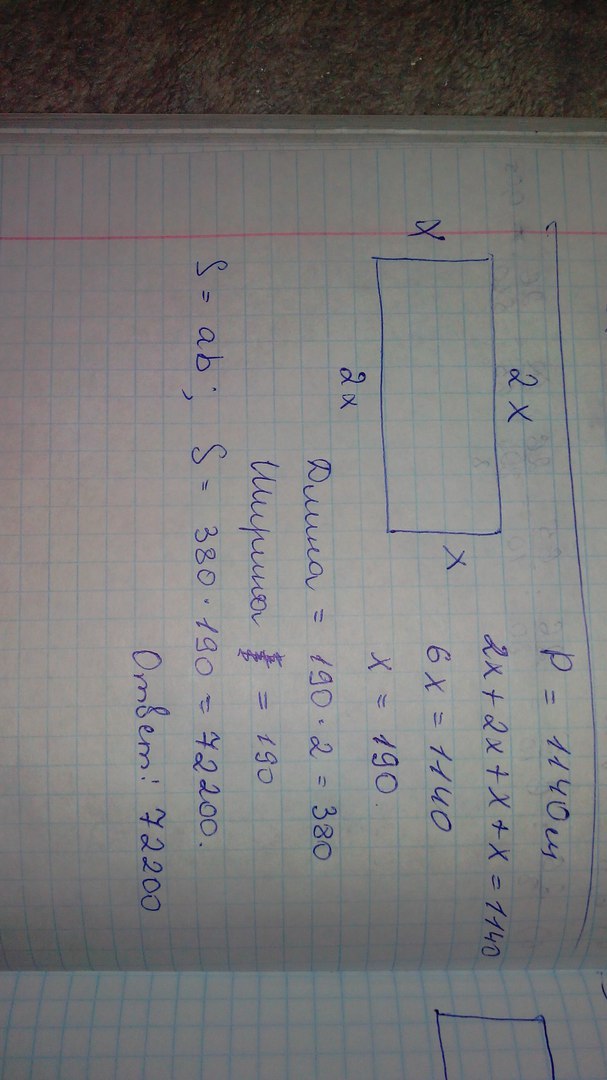 P = 1140 см
2x
x
x
2x
2x + 2x + x + x = 1140
6x = 1140
x = 190.
Длина = 190 · 2 = 380
Ширина = 190
S = ab; S = 380 · 190 = 72200.
Ответ: 72200